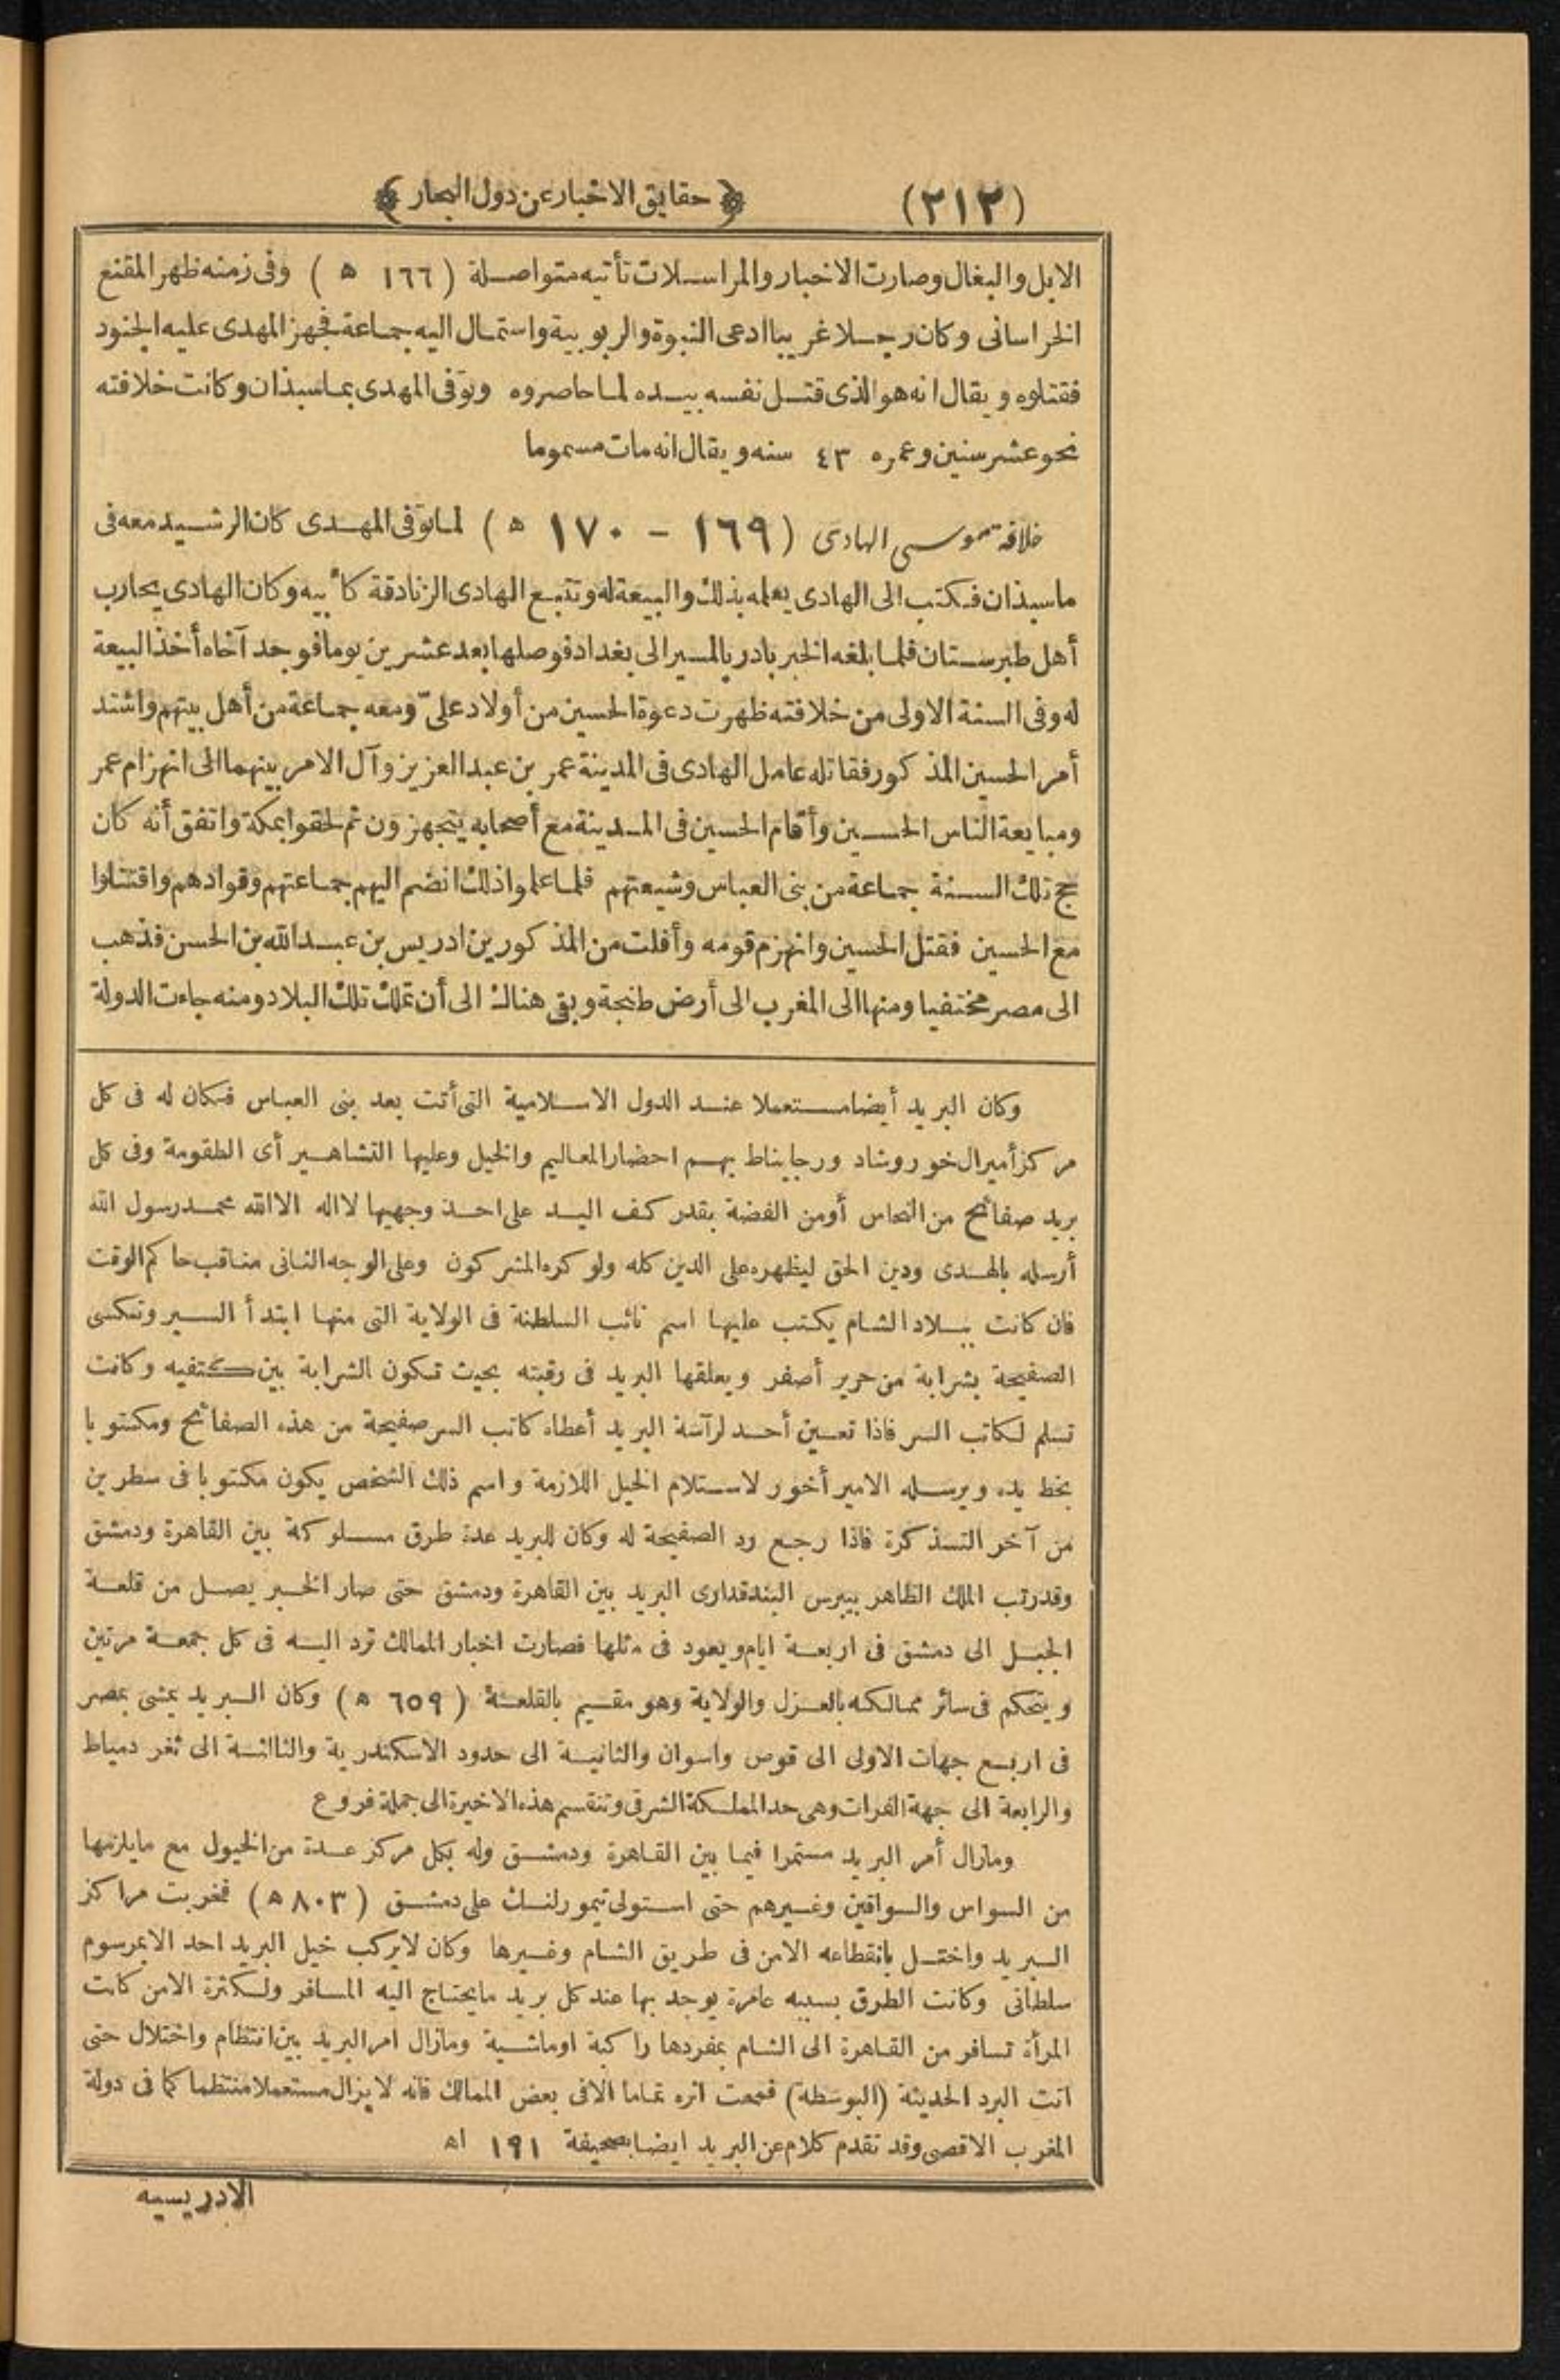 (٢١٢)
﴿ حقايق الاخبار عن دول البحار ﴾
الابل والبغال وصارت الاخبار والمراسلات تأتيه متواصلة ( ١٦٦ ه ) وفى زمنه ظهر المقنع
الخراسانى وكان رجلا غريبا ادعى النبوة والربوبية واستمال اليه جماعة فجهز المهدى عليه الجنود
فقتلوه ويقال انه هو الذى قتل نفسه بيده لما حاصروه وتوفى المهدى بماسبذان وكانت خلافته
نحو عشر سنين وعمره ٤٣ سنه ويقال انه مات مسموما
خلافة موسى الهادى ( ١٦٩ - ١٧٠ ه ) لما توفى المهدى كان الرشيد معه فى
ماسبذان فكتب الى الهادى يعلمه بذلك والبيعة له وتتبع الهادى الزنادقة كأبيه وكان الهادى يحارب
أهل طبرستان فلما بلغه الخبر بادر بالمسير الى بغداد فوصلها بعد عشرين يوما فوجد آخاه أخذ البيعة
له وفى السنة الاولى من خلافته ظهرت دعوة الحسين من أولاد علىّ ومعه جماعة من أهل بيتهم واشتد
أمر الحسين المذكور فقاتله عامل الهادى فى المدينة عمر بن عبد العزيز وآل الامر بينهما الى انهزام عمر
ومبايعة الناس الحسين وأقام الحسين فى المدينة مع أصحابه يتجهزون ثم لحقوا بمكة واتفق أنه كان
حج تلك السنة جماعة من بنى العباس وشيعتهم فلما علموا ذلك انضم اليهم جماعتهم وقوادهم واقتتلوا
مع الحسين فقتل الحسين وانهزم قومه وأفلت من المذكورين ادريس بن عبد الله بن الحسن فذهب
الى مصر مختفيا ومنها الى المغرب الى أرض طنجة وبقى هناك الى أن تملك تلك البلاد ومنه جاءت الدولة
وكان البريد أيضا مستعملا عند الدول الاسلامية التى أتت بعد بنى العباس فكان له فى كل
مركز أميرال خور وشاد ورجا يناط بهم احضار المعاليم والخيل وعليها التشاهير أى الطقومة وفى كل
بريد صفائح من النحاس أو من الفضة بقدر كف اليد على احد وجهيها لا اله الا الله محمد رسول الله
أرسله بالهدى ودين الحق ليظهره على الدين كله ولو كره المشركون وعلى الوجه الثانى مناقب حاكم الوقت
فان كانت ببلاد الشام يكتب عليها اسم نائب السلطنة فى الولاية التى منها ابتدأ السير وتكسى
الصفيحة بشرابة من حرير أصفر ويعلقها البريد فى رقبته بحيث تكون الشرابة بين كتفيه وكانت
تسلم لكاتب السر فاذا تعين أحد لرآسة البريد أعطاه كاتب السر صفيحة من هذه الصفائح ومكتوبا
بخط يده ويرسله الامير أخور لاستلام الخيل اللازمة واسم ذلك الشخص يكون مكتوبا فى سطرين
من آخر التذكرة فاذا رجع رد الصفيحة له وكان للبريد عدة طرق مسلوكة بين القاهرة ودمشق
وقد رتب الملك الظاهر بيبرس البندقدارى البريد بين القاهرة ودمشق حتى صار الخبر يصل من قلعة
الجبل الى دمشق فى اربعة ايام ويعود فى مثلها فصارت اخبار الممالك ترد اليه فى كل جمعة مرتين
ويتحكم فى سائر ممالكه بالعزل والولاية وهو مقيم بالقلعة ( ٦٥٩ ه ) وكان البريد يمشى بمصر
فى اربع جهات الاولى الى قوص واسوان والثانية الى حدود الاسكندرية والثالثة الى ثغر دمياط
والرابعة الى جهة الفرات وهى حد المملكة الشرقى وتنقسم هذه الاخيرة الى جملة فروع
ومازال أمر البريد مستمرا فيما بين القاهرة ودمشق وله بكل مركز عدة من الخيول مع مايلزمها
من السواس والسواقين وغيرهم حتى استولى تيمورلنك على دمشق ( ٨٠٣ ه ) فخربت مراكز
البريد واختل بانقطاعه الامن فى طريق الشام وغيرها وكان لايركب خيل البريد احد الا بمرسوم
سلطانى وكانت الطرق بسببه عامرة يوجد بها عند كل بريد مايحتاج اليه المسافر ولكثرة الامن كانت
المرأة تسافر من القاهرة الى الشام بمفردها راكبة او ماشية ومازال امر البريد بين انتظام واختلال حتى
اتت البرد الحديثة (البوسطة) فمحت اثره تماما الا فى بعض الممالك فانه لا يزال مستعملا منتظما كما فى دولة
المغرب الاقصى وقد تقدم كلام عن البريد ايضا بصحيفة ١٩١ اه
الادريسية